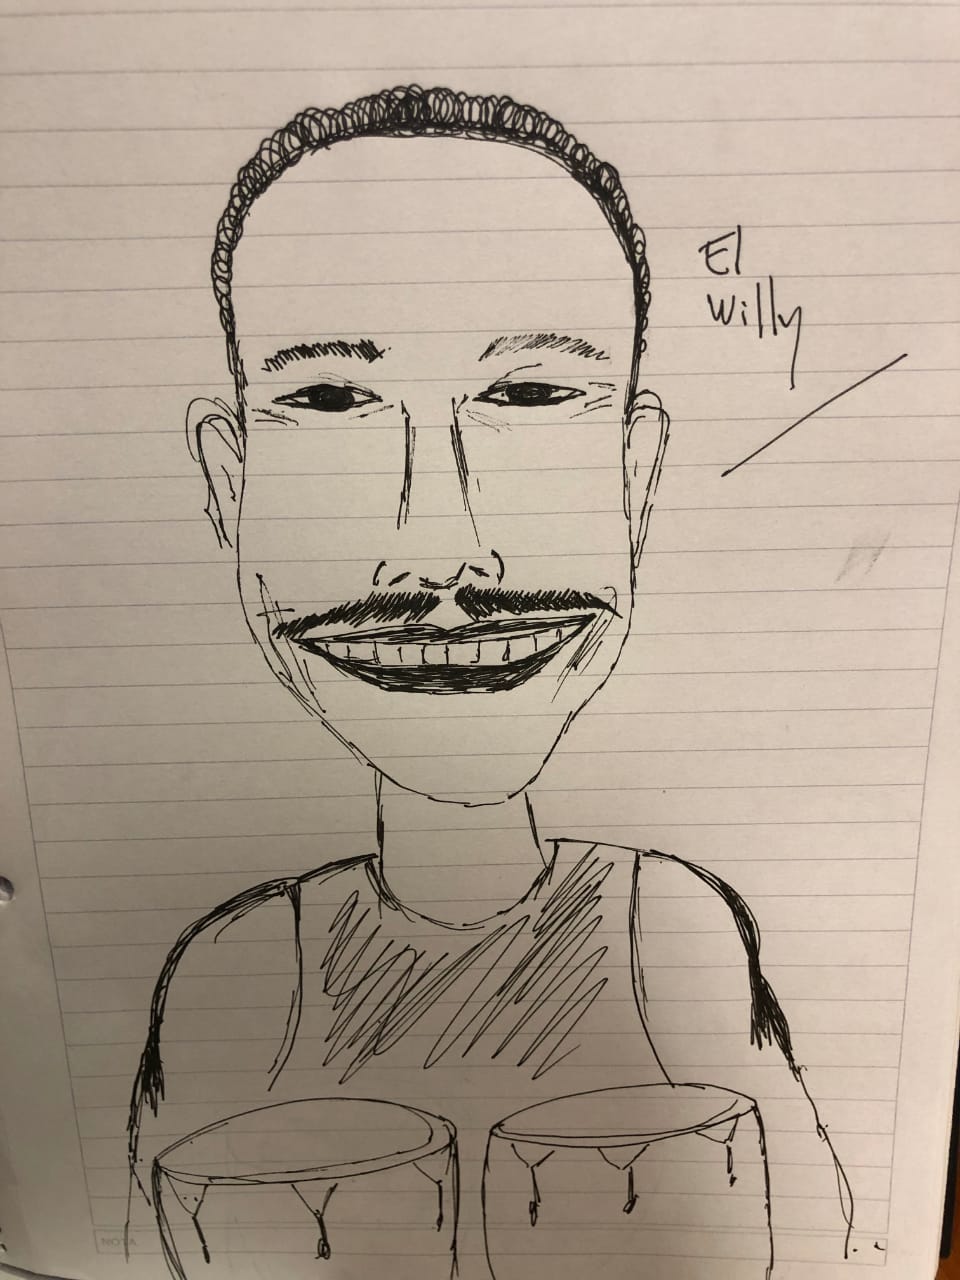 El
Willy
NOTA